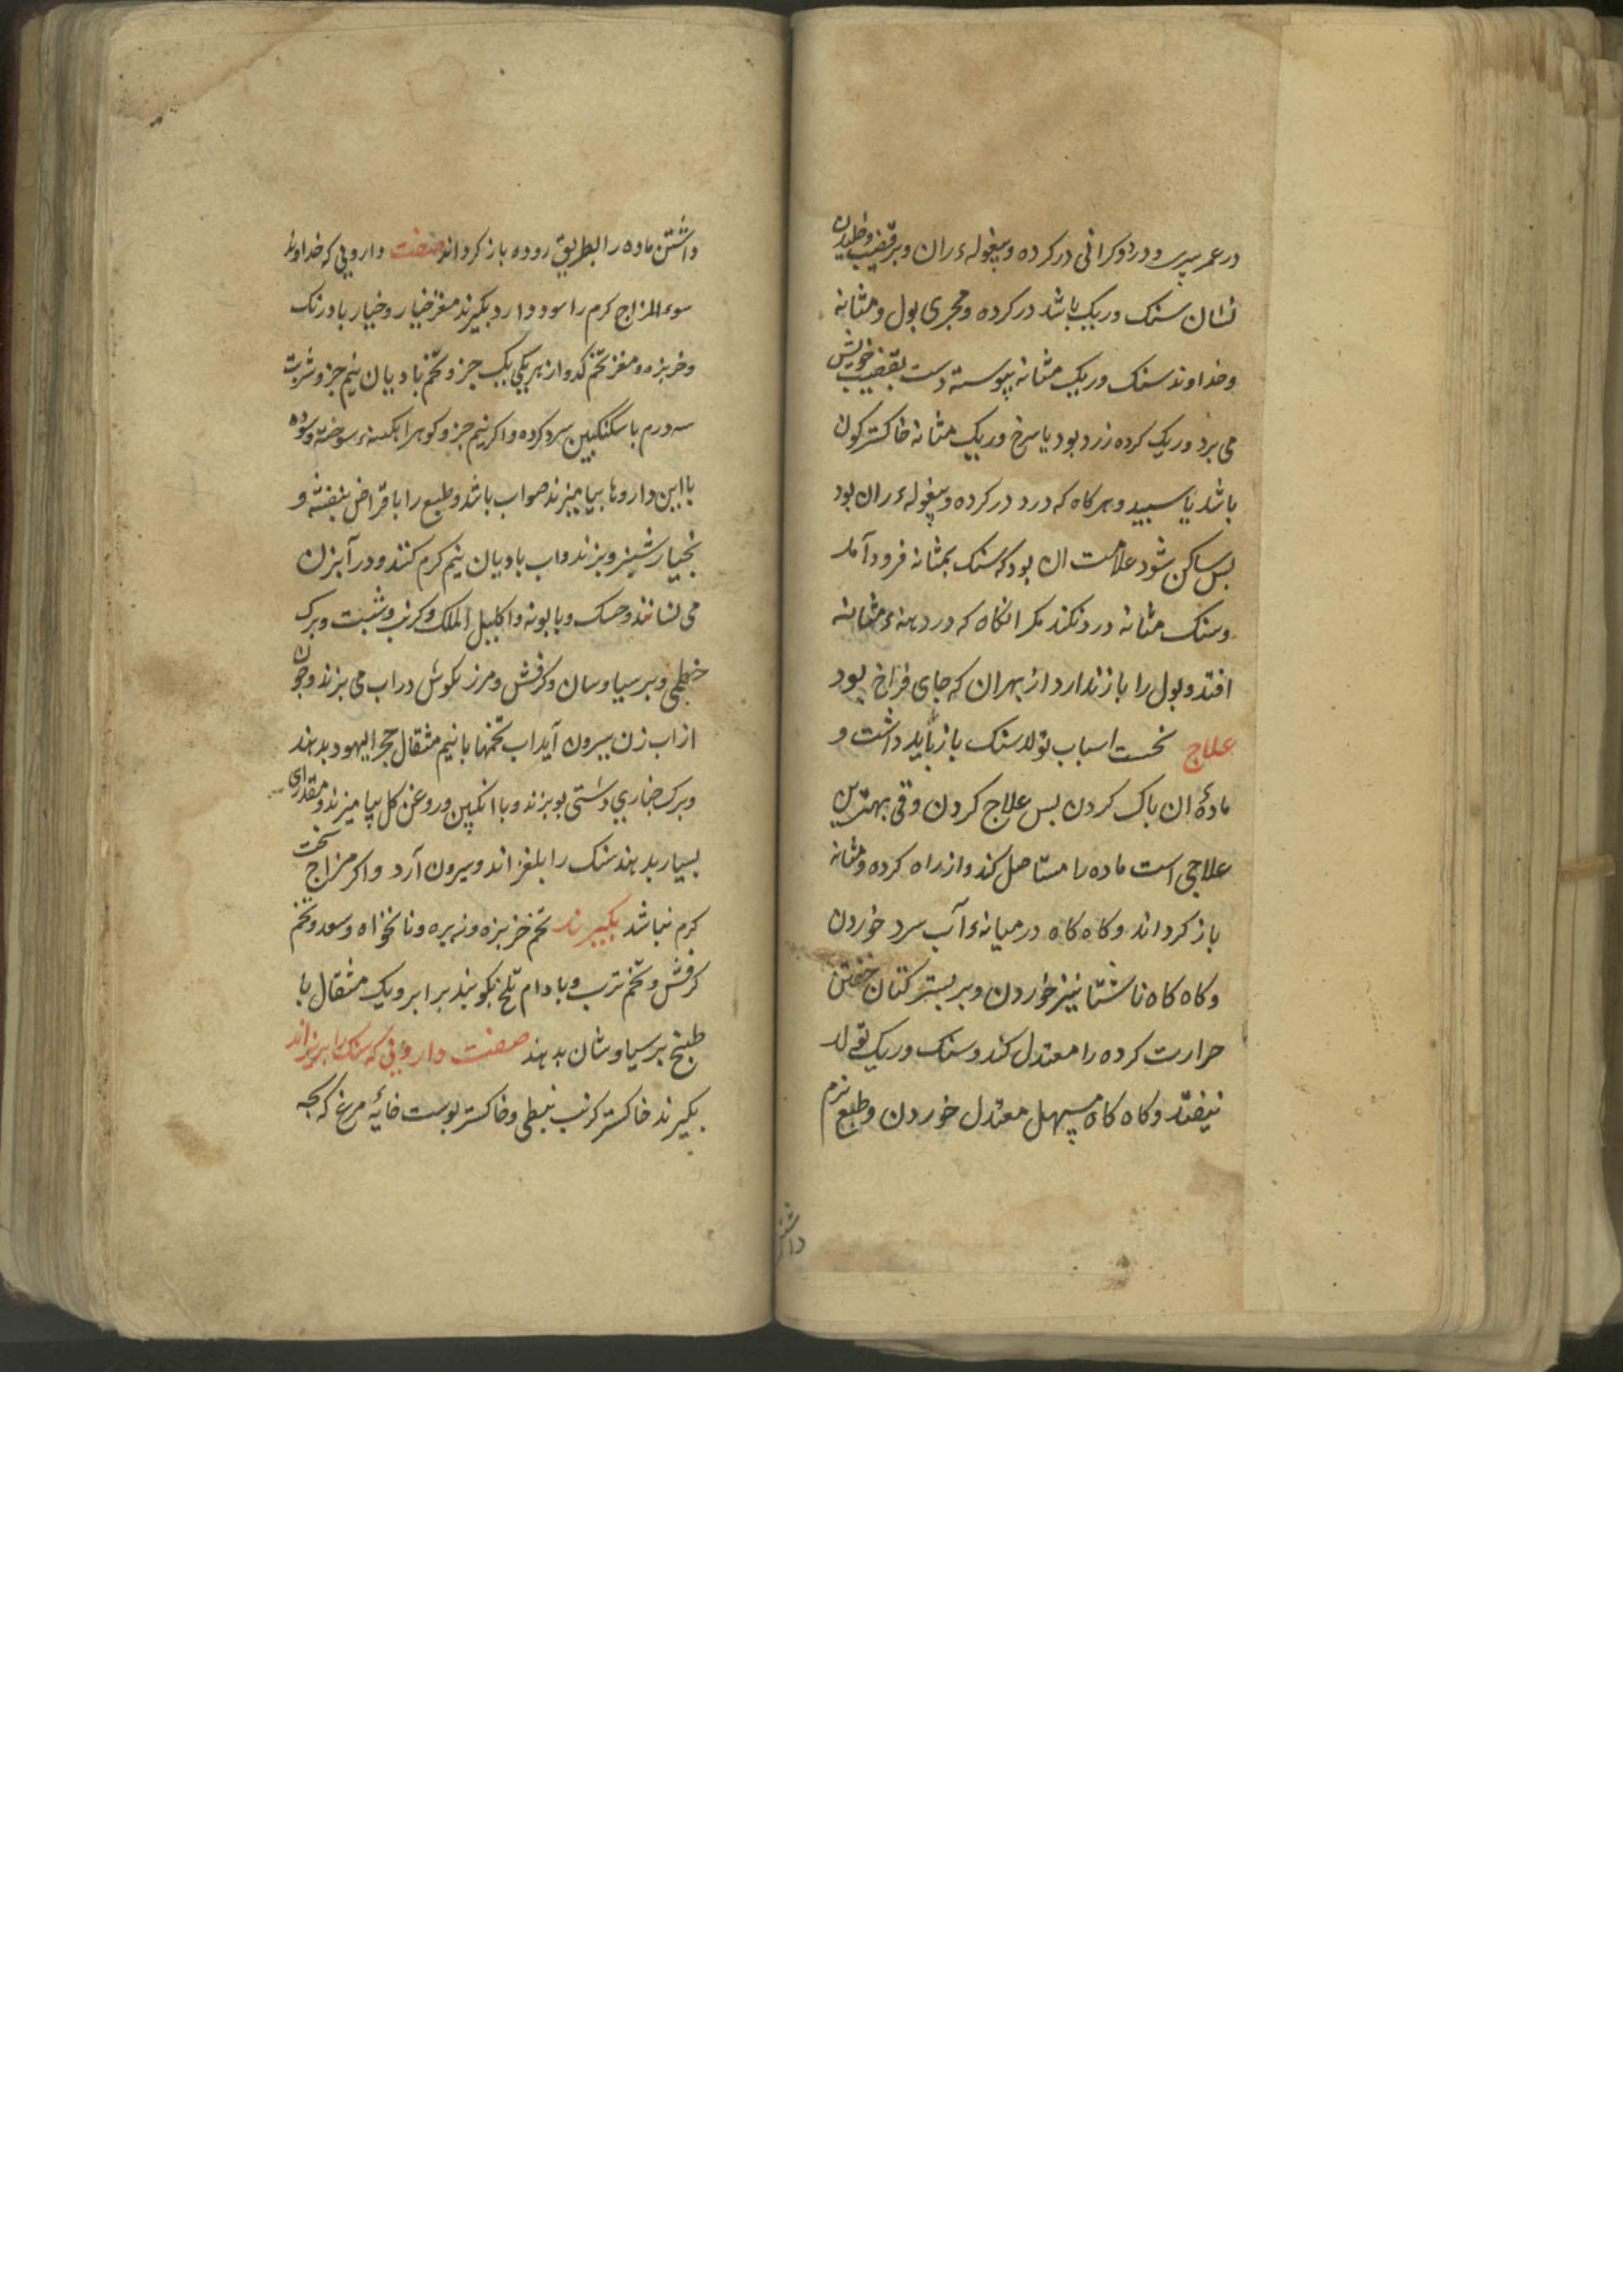 در عمر پیری و درد و کرانی در کرده و پیغوله ران و بر قضیب و خلیدن
نشان سنک و ریک باشد در کرده و مجری بول و مثانه
و خداوند سنک و ریک مثانه پیوسته دست بقضیب خویش
می برد و ریک کرده زرد بود یا سرخ و ریک مثانه خاکستر کون
باشد یا سپید و هر کاه که درد در کرده و پیغوله ران بود
بس ساکن شود علامت ان بود که سنک بمثانه فرود آمد
و سنک مثانه درد نکند مکر انکاه که در دهنهٔ مثانه
افتد و بول را باز ندارد از بهر ان که جای فراخ بود
علاج نخست اسباب تولد سنک باز باید داشت و
مادهٔ ان باک کردن بس علاج کردن و قی بهترین
علاجی است ماده را مستاصل کند و از راه کرده و مثانه
باز کرداند و کاه کاه در میانهٔ آب سرد خوردن
و کاه کاه ناشتا نیز خوردن و بر بستر کتان خفتن
حرارت کرده را معتدل کند و سنک و ریک تولد
نیفتد و کاه کاه مسهل معتدل خوردن و طبع نرم
داشتن
داشتن ماده را بطریق روده باز کرداند صفت دارویی که خداوند
سوء المزاج کرم را سود دارد بکیرند مغز خیار و خیار بادرنک
و خربزه و مغز تخم کدو از هر یکی یک جزو تخم بادیان نیم جزو شربت
سه درم با سکنکبین سرد کرده و اکر نیم جزو کوهر ابکینه سوخته و سوده
با این داروها بیامیزند صواب باشد و طبع را با قراص بنفشه و
بخیار شنبر و بزند و اب بادیان نیم کرم کنند و در آبزن
می نشانند و حسک و بابونه و اکلیل الملک و کرنب و شبت و برک
خطمی و برسیاوسان و کرفش و مرزنکوش در اب می بزند و چون
از اب زن بیرون آید اب تخمها با نیم مثقال حجر الیهود بدهند
و برک خباری دشتی بوبزند و با انکبین و روغن کل بیامیزند و مقداری
بسیار بدهند سنک را بلغزاند و بیرون آرد و اکر مزاج سخت
کرم نباشد بکیرند تخم خربزه و زیره و نانخواه و سعد و تخم
کرفش و تخم ترب و بادام تلخ بکوبند برابر و یک مثقال با
طبیخ برسیاوشان بدهند صفت دارویی که سنک را بریزاند
بکیرند خاکستر کرنب نبطی و خاکستر پوست خائه مرغ که بجه